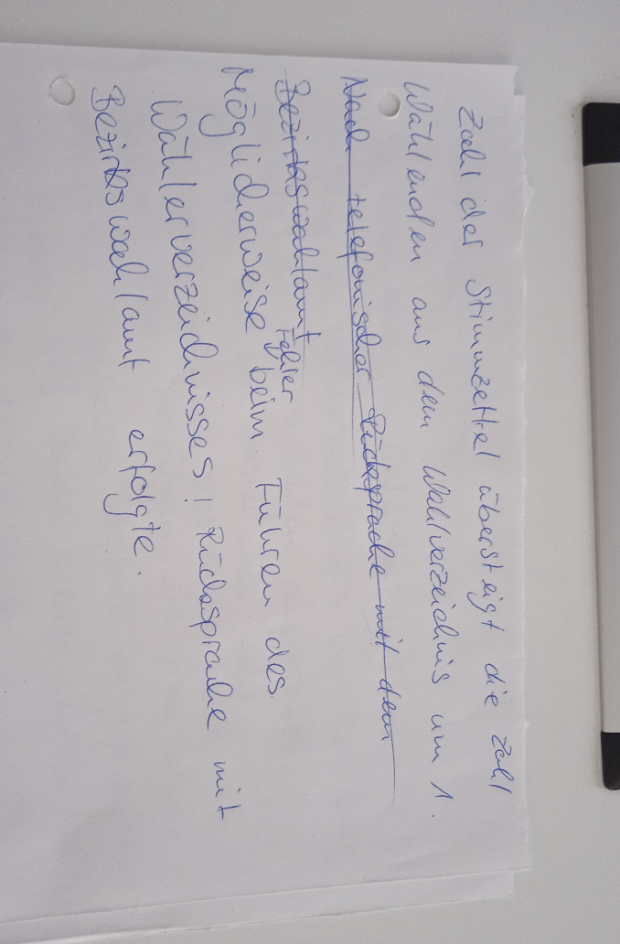 Zahl der Stimmzettel übersteigt die Zahl
Wählenden aus dem Wahlverzeichnis um 1.
Nach telefonischer Rücksprache mit dem
Bezirkswahlamt
Fehler
Möglicherweise beim Führen des
Wählerverzeichnisses! Rücksprache mit
Bezirkswahlamt erfolgte.